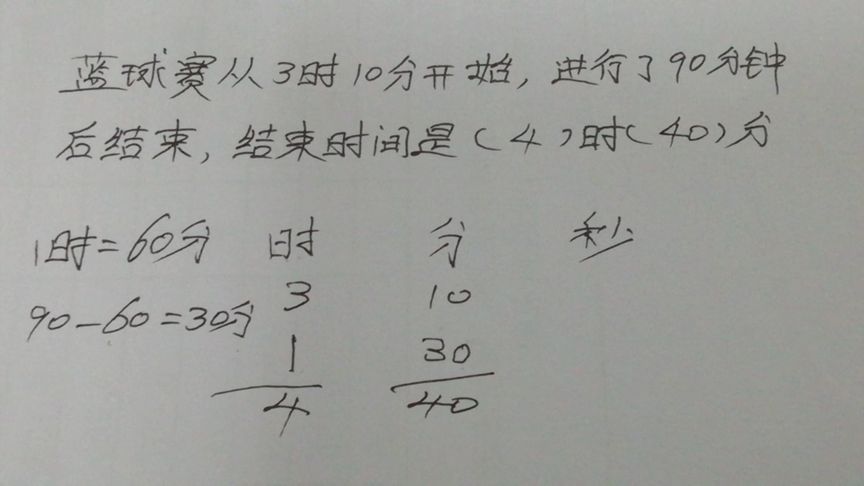 蓝球赛从3时10分开始，进行了90分钟
后结束，结束时间是（4）时（40）分
1时=60分 时 分 秒
90-60=30分 3 10
1 30
4 40